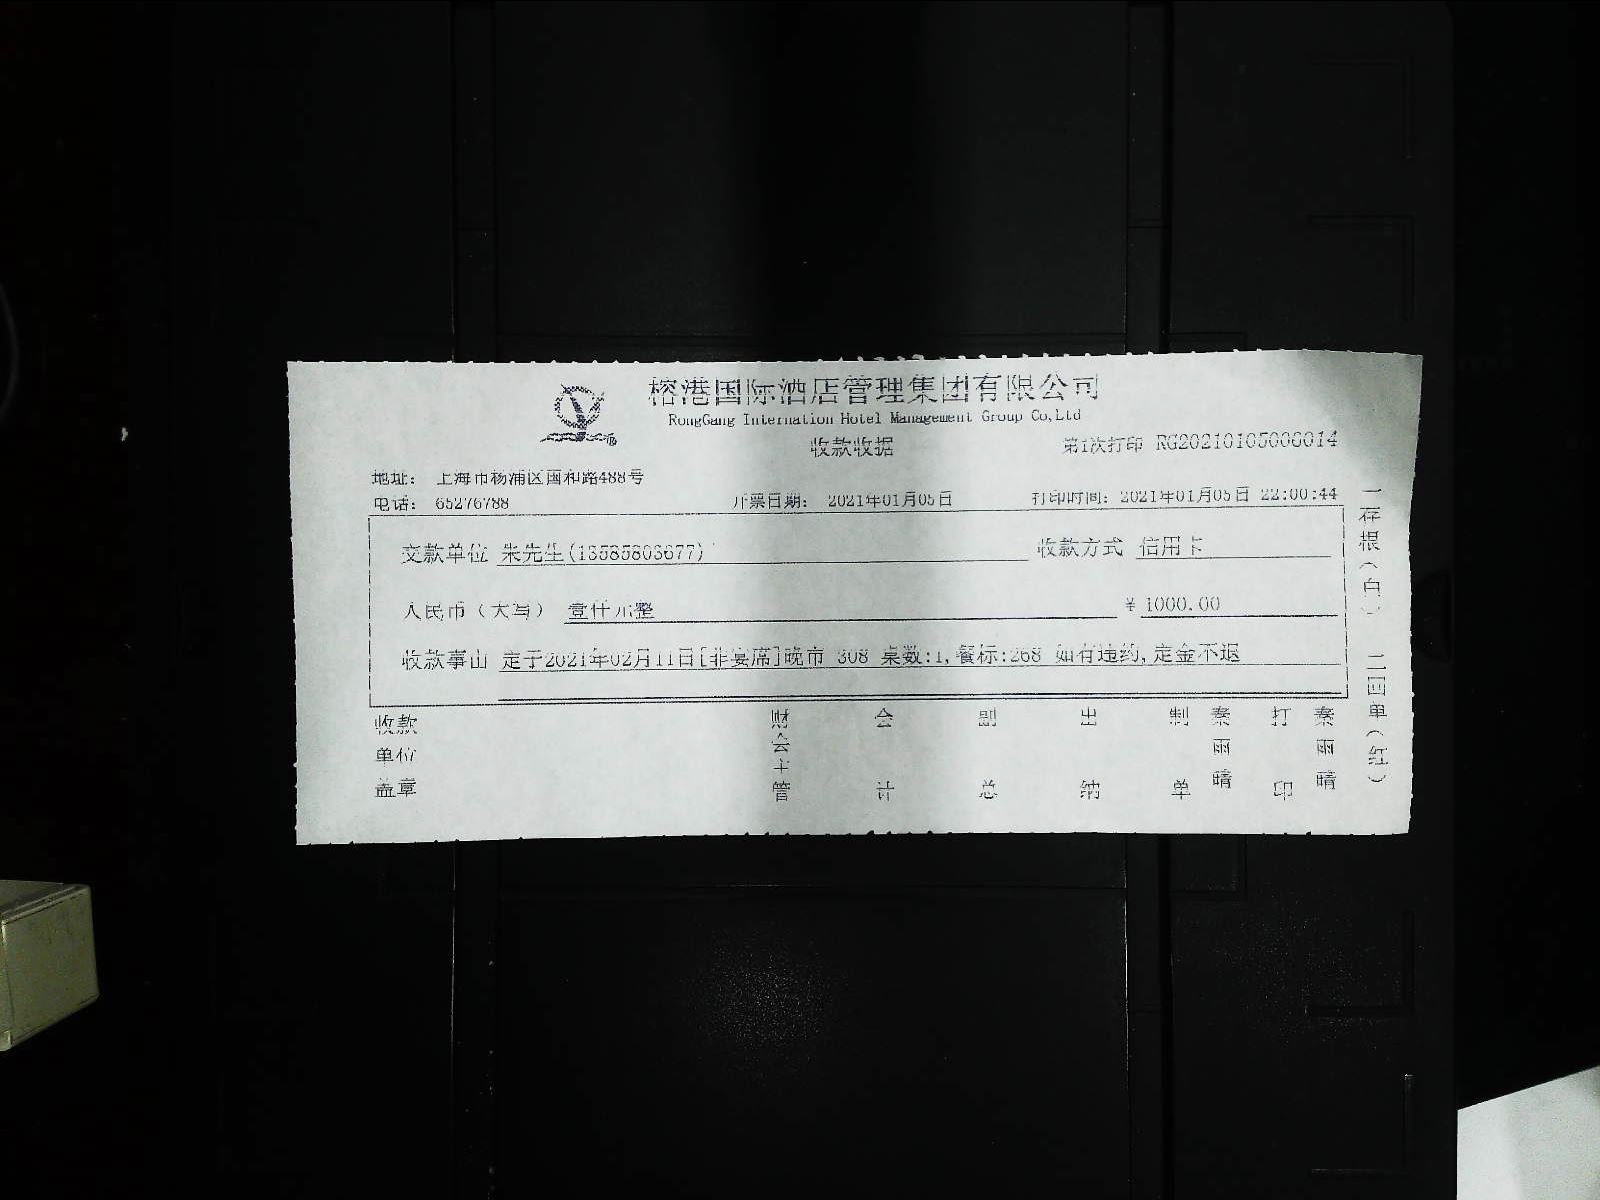 榕港国际酒店管理集团有限公司
RongGang Internation Hotel Management Group Co,Ltd
收款收据
第1次打印 RG20210105000014
地址： 上海市杨浦区国和路488号
电话： 65276788 开票日期： 2021年01月05日 打印时间：2021年01月05日 22:00:44
交款单位 朱先生 收款方式 信用卡
人民币（大写） 壹仟元整 ￥ 1000.00
收款事由 定于2021年02月11日[非宴席]晚市 308 桌数:1,餐标:268 如有违约,定金不退
收款单位盖章 财会主管 会计 副总 出纳 制单 秦雨晴 打印 秦雨晴
一存根（白） 二回单（红）